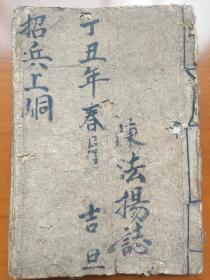 招兵上峒
丁丑年春月 吉旦
陳法揚誌